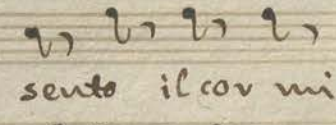 sento il cor mi